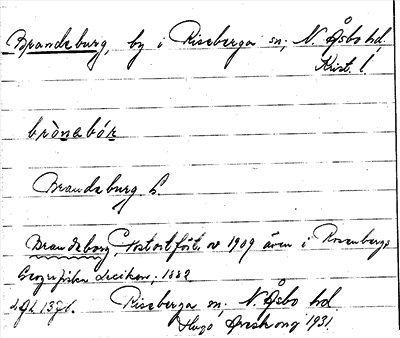 Brandsburg, by i Riseberga sn; N. Åsbo hd,
Krist. l.
brònabór
Brandsburg
Brandsborg, Postort fört. av 1909 även i Rosenbergs
Geografiska Lexikon, 1882
Riseberga sn; N. Åsbo hd
Hugo Areskoug 1931